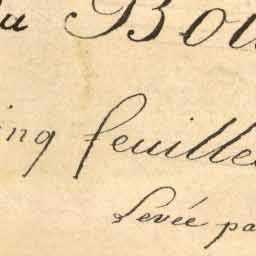 du Bou
ing feuille
Levée pa